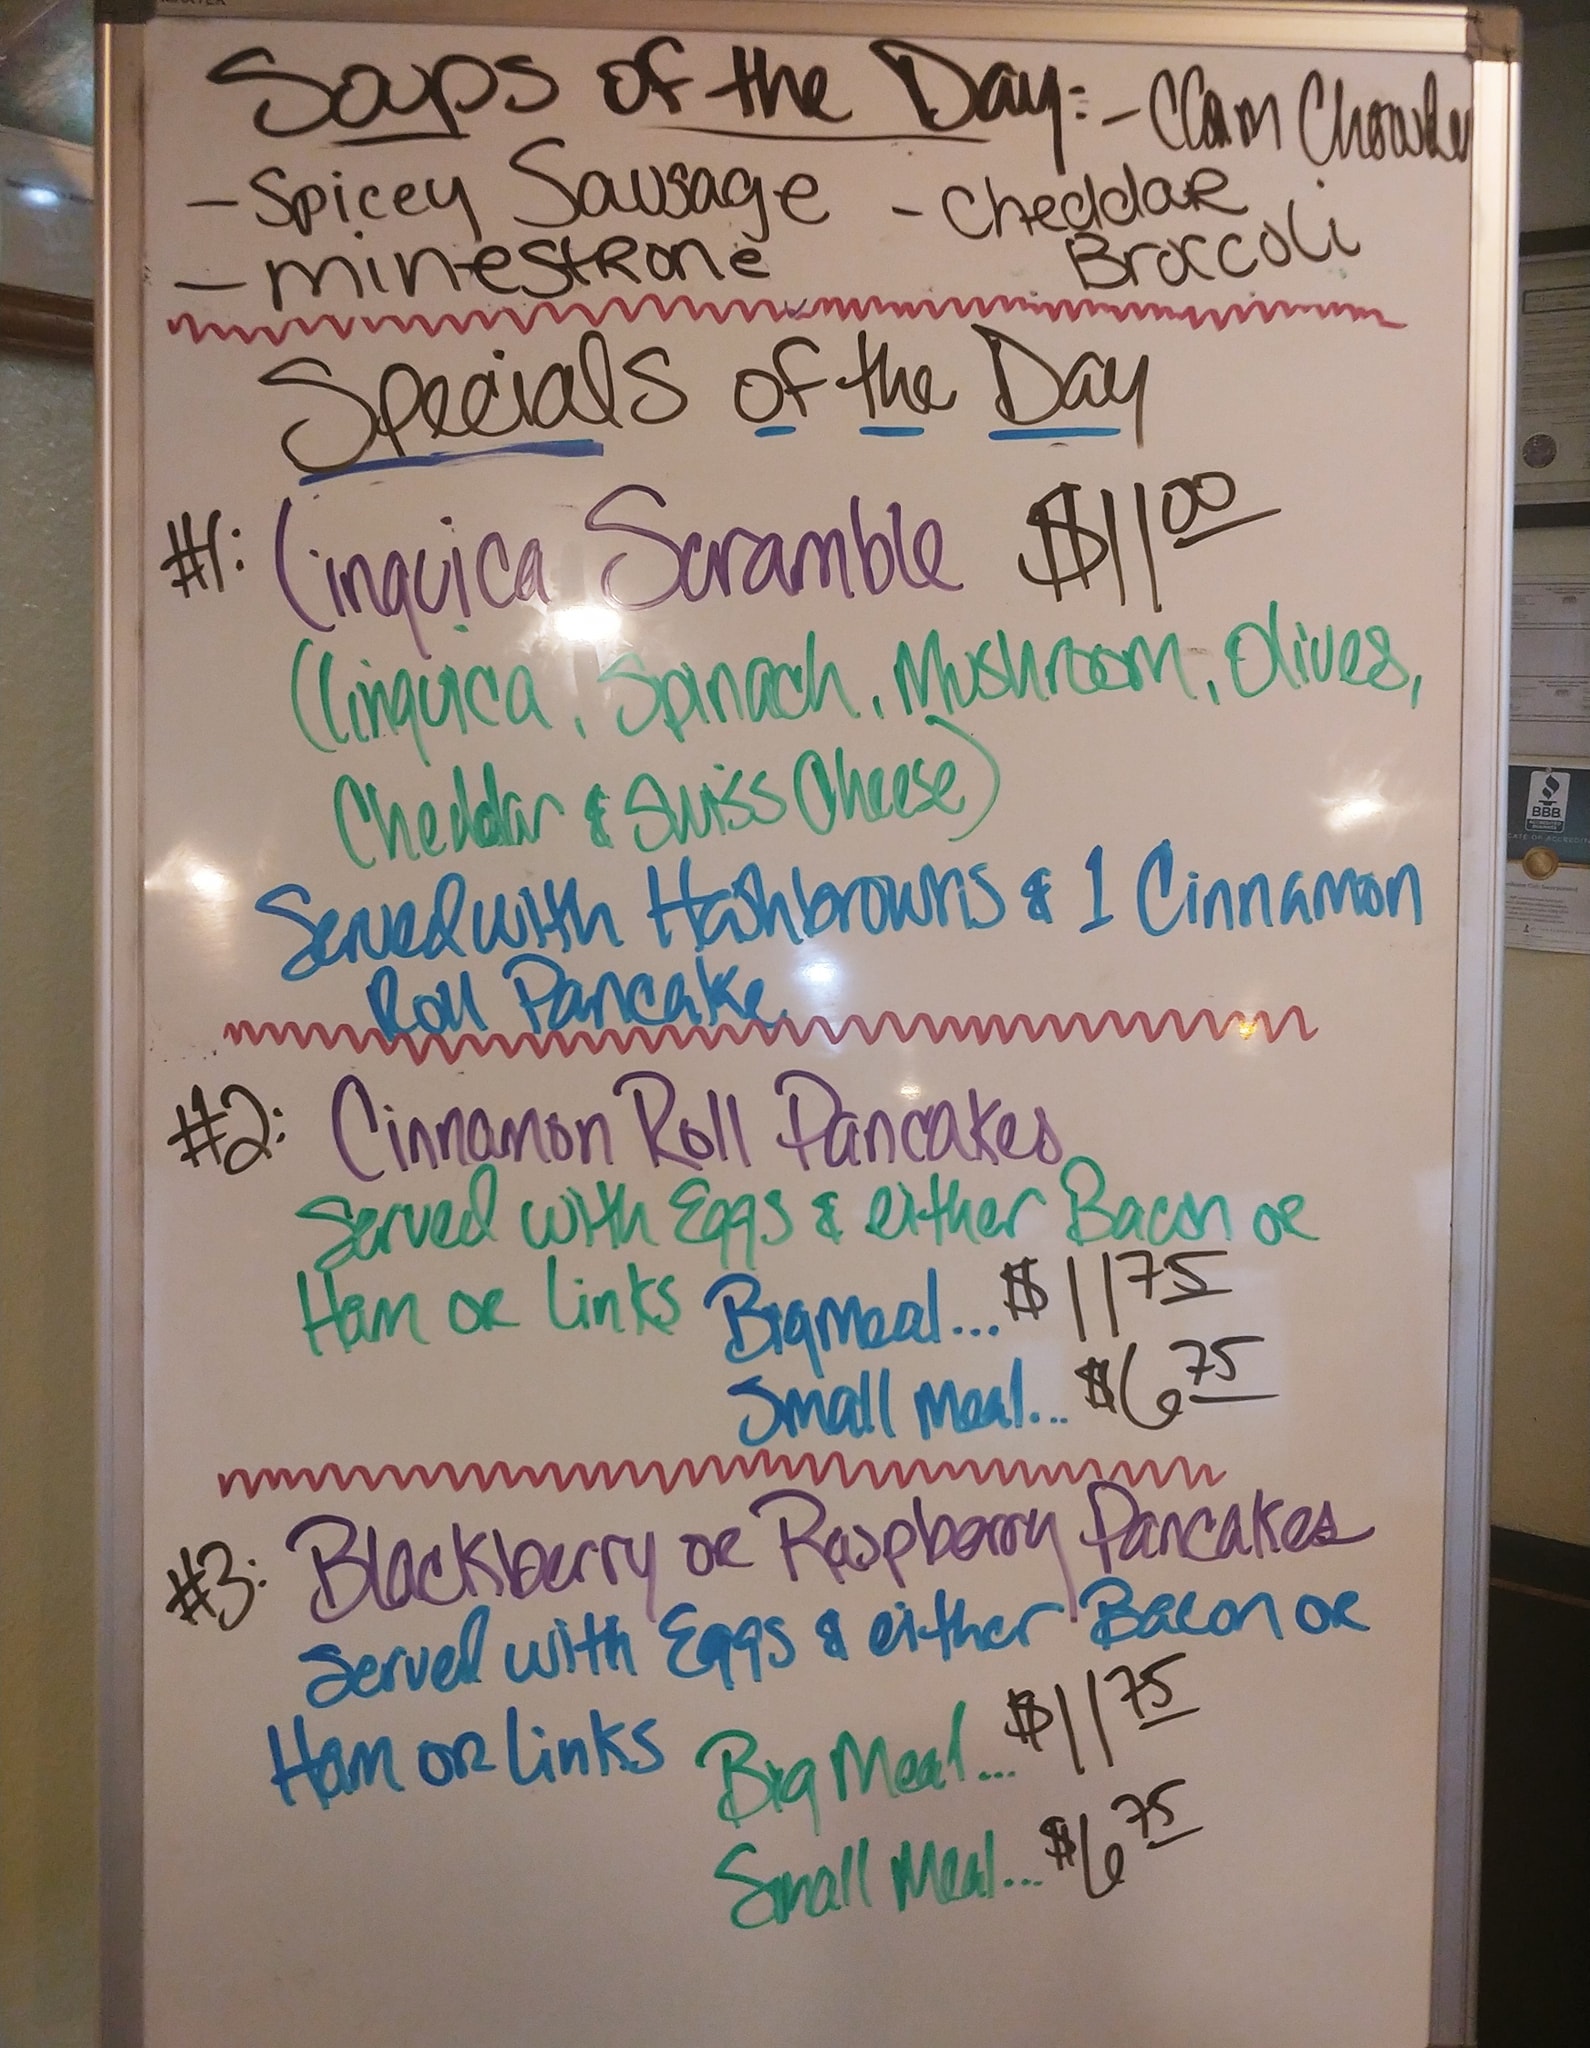 Soups of the Day: - Clam Chowder
- Spicey Sausage
- Cheddar Broccoli
- minestrone
Specials of the Day
#1: Linquica Scramble $11.00
(linquica, Spinach, Mushroom, Olives,
Cheddar & Swiss Cheese)
Served with Hashbrowns & 1 Cinnamon
Roll Pancake.
#2: Cinnamon Roll Pancakes
Served with Eggs & either Bacon or
Ham or Links Big Meal... $11.75
Small Meal... $6.75
#3: Blackberry or Raspberry Pancakes
Served with Eggs & either Bacon or
Ham or Links Big Meal... $11.75
Small Meal... $6.75
BBB